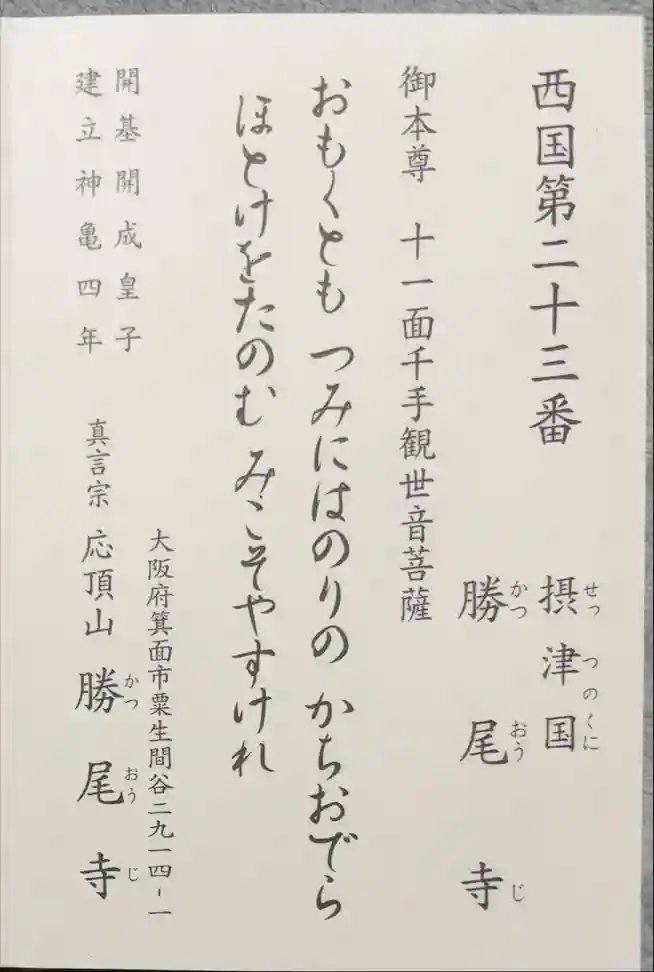 西国第二十三番
摂津国
せっつのくに
勝尾寺
かつおうじ
御本尊 十一面千手観世音菩薩
おもくとも つみにはのりの かちおでら
ほとけをたのむ みゝこそやすけれ
開基開成皇子
建立神亀四年
大阪府箕面市粟生間谷二九一四-一
真言宗 応頂山 勝尾寺
かつおうじ